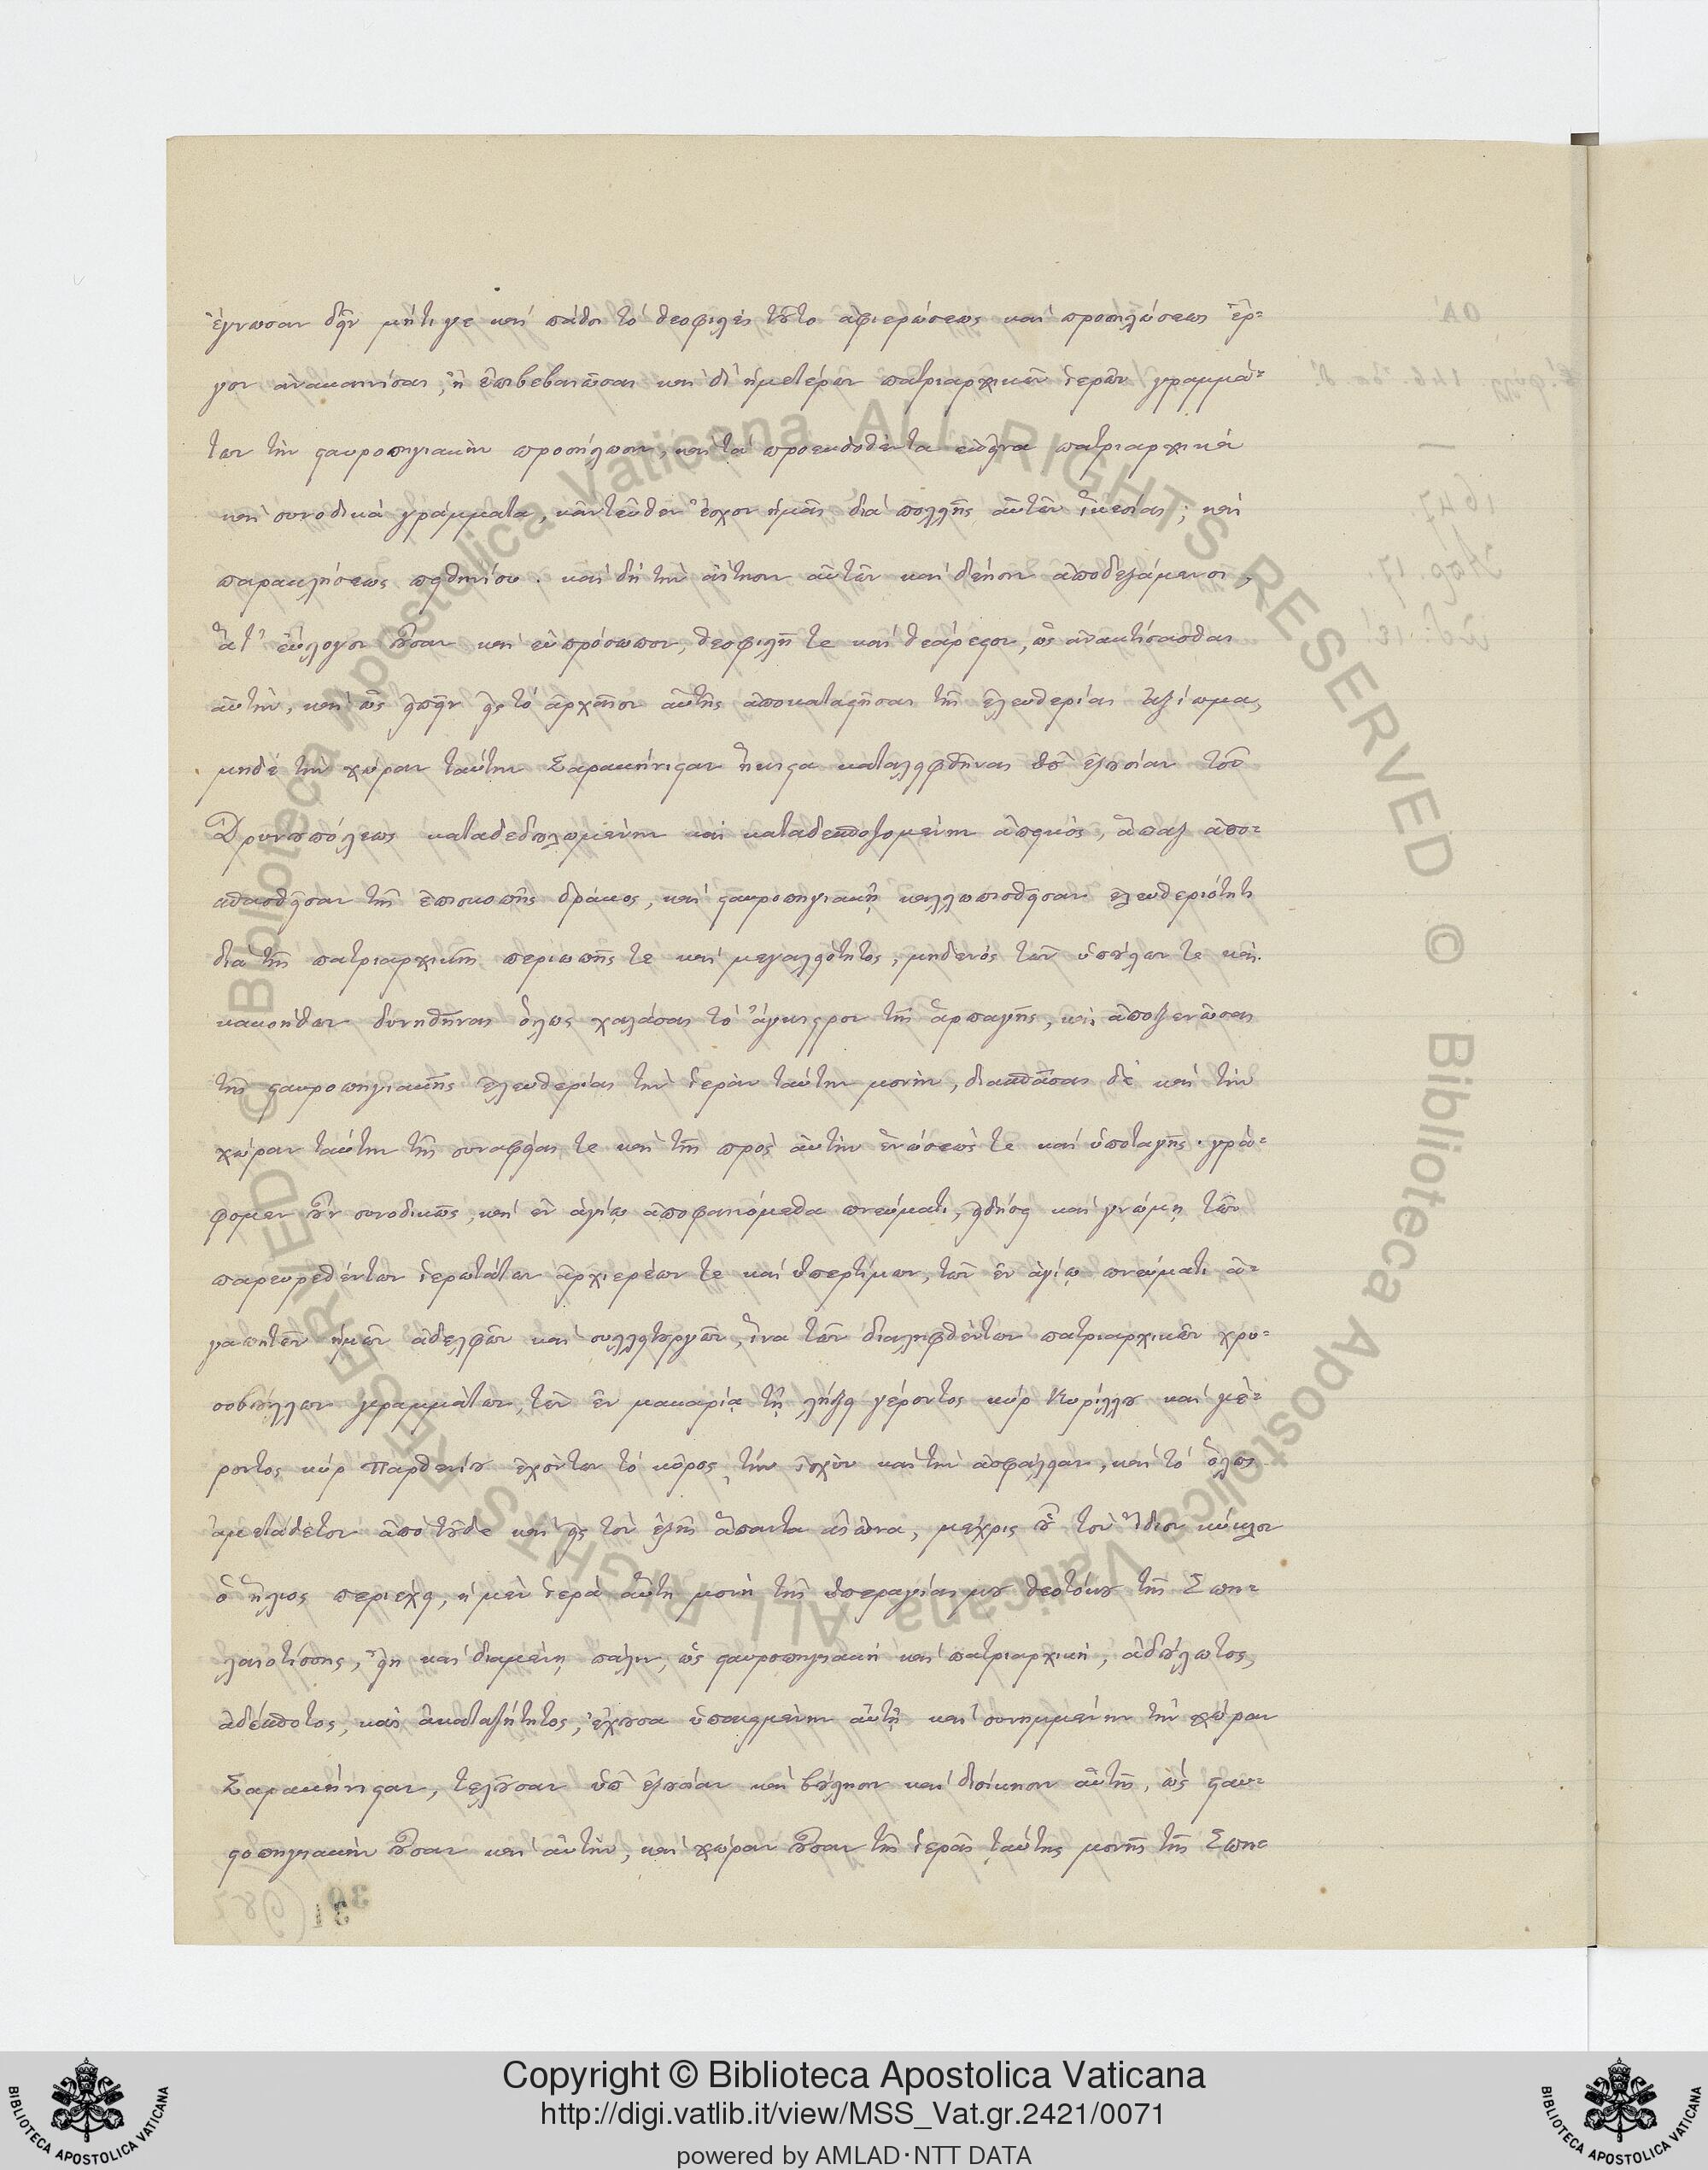 ἔγνωσαν δεῖν μήτι γε καὶ πάθοι τὸ θεοφιλὲς τοῦτο ἀφιερώσεως καὶ προσηλώσεως ἔρ-
γον ἀνακαινίσαι, ἢ ἐπιβεβαιῶσαι καὶ δι' ἡμετέρων πατριαρχικῶν ἱερῶν γραμμά-
των τὴν σταυροπηγιακὴν προσήλωσιν, καὶ τὰ προεκδοθέντα ἐκεῖνα πατριαρχικὰ
καὶ συνοδικὰ γράμματα, κἀντεῦθεν ἔσχον ἡμᾶς διὰ πολλῆς αὐτῶν ἱκεσίας, καὶ
παρακλήσεως πειθηνίου. καὶ δὴ τὴν αἴτησιν αὐτῶν καὶ δέησιν ἀποδεξάμενοι,
ἅτ' εὔλογον οὖσαν καὶ εὐπρόσωπον, θεοφιλῆ τε καὶ θεάρεστον, ὡς ἀνακτήσασθαι
αὐτὴν, καὶ ὡς εἰπεῖν εἰς τὸ ἀρχαῖον αὐτῆς ἀποκαταστῆσαι τῆς ἐλευθερίας ἀξίωμα,
μηδὲ τὴν χώραν ταύτην Σαρακήνισταν ἥκιστα καταλειφθῆναι ὑπ' ἐξουσίαν τοῦ
Δρυνουπόλεως καταδεδουλωμένην καὶ καταδεσποζομένην ἀπεικός, ἅπαξ ἀπο-
σπασθεῖσαν τῆς ἐπισκοπῆς δράκος, καὶ σταυροπηγιακῇ καλλωπισθεῖσαν ἐλευθεριότητι
διὰ τῆς πατριαρχικῆς περιωπῆς τε καὶ μεγαλειότητος, μηδενὸς τῶν ὑπούλων τε καὶ
κακοήθων δυνηθῆναι ὅλως χαλάσαι τὸ ἄγκιστρον τῆς ἁρπαγῆς, καὶ ἀποξενῶσαι
τῆς σταυροπηγιακῆς ἐλευθερίας τὴν ἱερὰν ταύτην μονὴν, διασπᾶσαι δὲ καὶ τὴν
χώραν ταύτην τῆς συναφείας τε καὶ τῆς πρὸς αὐτὴν ἑνώσεώς τε καὶ ὑποταγῆς· γρά-
φομεν οὖν συνοδικῶς, καὶ ἐν ἁγίῳ ἀποφαινόμεθα πνεύματι, εἰδήσει καὶ γνώμῃ τῶν
παρευρεθέντων ἱερωτάτων ἀρχιερέων τε καὶ ὑπερτίμων, τῶν ἐν ἁγίῳ πνεύματι ἀ-
γαπητῶν ἡμῶν ἀδελφῶν καὶ συλλειτουργῶν, ἵνα τῶν διαληφθέντων πατριαρχικῶν χρυ-
σοβούλλων γραμμάτων, τῶν ἐν μακαρίᾳ τῇ λήξει γέροντος κὺρ Κυρίλλου καὶ γέ-
ροντος κὺρ Παρθενίου ἐχόντων τὸ κῦρος, τὴν ἰσχὺν καὶ τὴν ἀσφάλειαν, καὶ τὸ ὅλως
ἀμετάθετον ἀπὸ τοῦδε καὶ εἰς τὸν ἑξῆς ἅπαντα αἰῶνα, μέχρις οὗ τὸν ἴδιον κύκλον
ὁ ἥλιος περιέχει, ἡ μὲν ἱερὰ αὕτη μονὴ τῆς ὑπεραγίας μου θεοτόκου τῆς Σπη-
λαιοτίσσης, εἴη καὶ διαμένῃ πάλιν, ὡς σταυροπηγιακὴ καὶ πατριαρχικὴ, ἀδούλωτος,
ἀδέσποτος, καὶ ἀκαταζήτητος, ἔχουσα ὑποκειμένην αὐτῇ καὶ συνημμένην τὴν χώραν
Σαρακήνισταν, τελοῦσαν ὑπ' ἐξουσίαν καὶ βούλησιν καὶ διοίκησιν αὐτῆς, ὡς σταυ-
ροπηγιακὴν οὖσαν καὶ αὐτὴν, καὶ χώραν οὖσαν τῆς ἱερᾶς ταύτης μονῆς τῆς Σπη-
Copyright © Biblioteca Apostolica Vaticana
http://digi.vatlib.it/view/MSS_Vat.gr.2421/0071
powered by AMLAD·NTT DATA